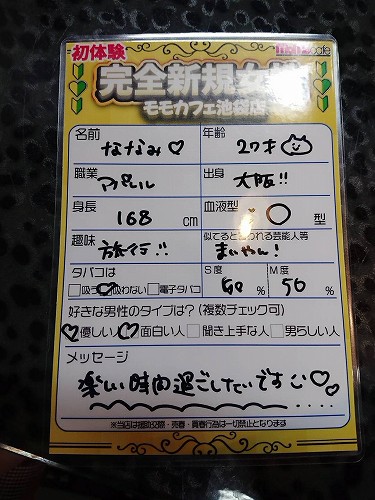 初体験
momocafe
完全新規女性
モモカフェ池袋店
名前 ななみ♡ 年齢 27才
職業 アパレル 出身 大阪!!
身長 168 cm 血液型 O 型
趣味 旅行!! 似てると言われる芸能人等 まいやん!
タバコは S度 M度
□吸う □吸わない □電子タバコ 50 % 50 %
好きな男性のタイプは?(複数チェック可)
□優しい人 □面白い人 □聞き上手な人 □男らしい人
メッセージ
楽しい時間過ごしたいです♡♡
※当店は援助交際・売春・買春行為は一切禁止となります